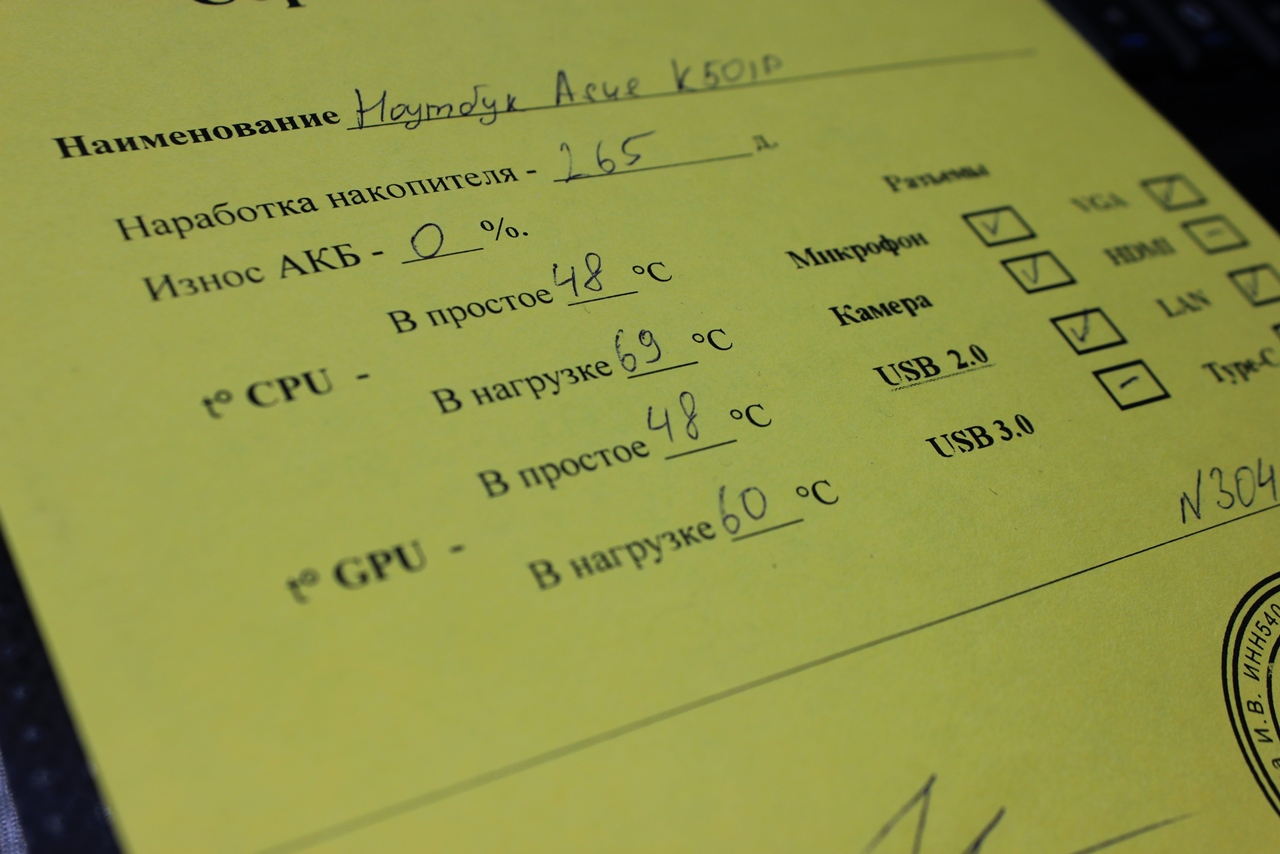 Наименование Ноутбук Asus K50IP
Наработка накопителя - 265 д.
Износ АКБ - 0 %.
t° CPU -
В простое 48 °C
В нагрузке 69 °C
t° GPU -
В простое 48 °C
В нагрузке 60 °C
Разъемы
Микрофон
Камера
USB 2.0
USB 3.0
VGA
HDMI
LAN
Type-C
N304
И.В. ИНН540